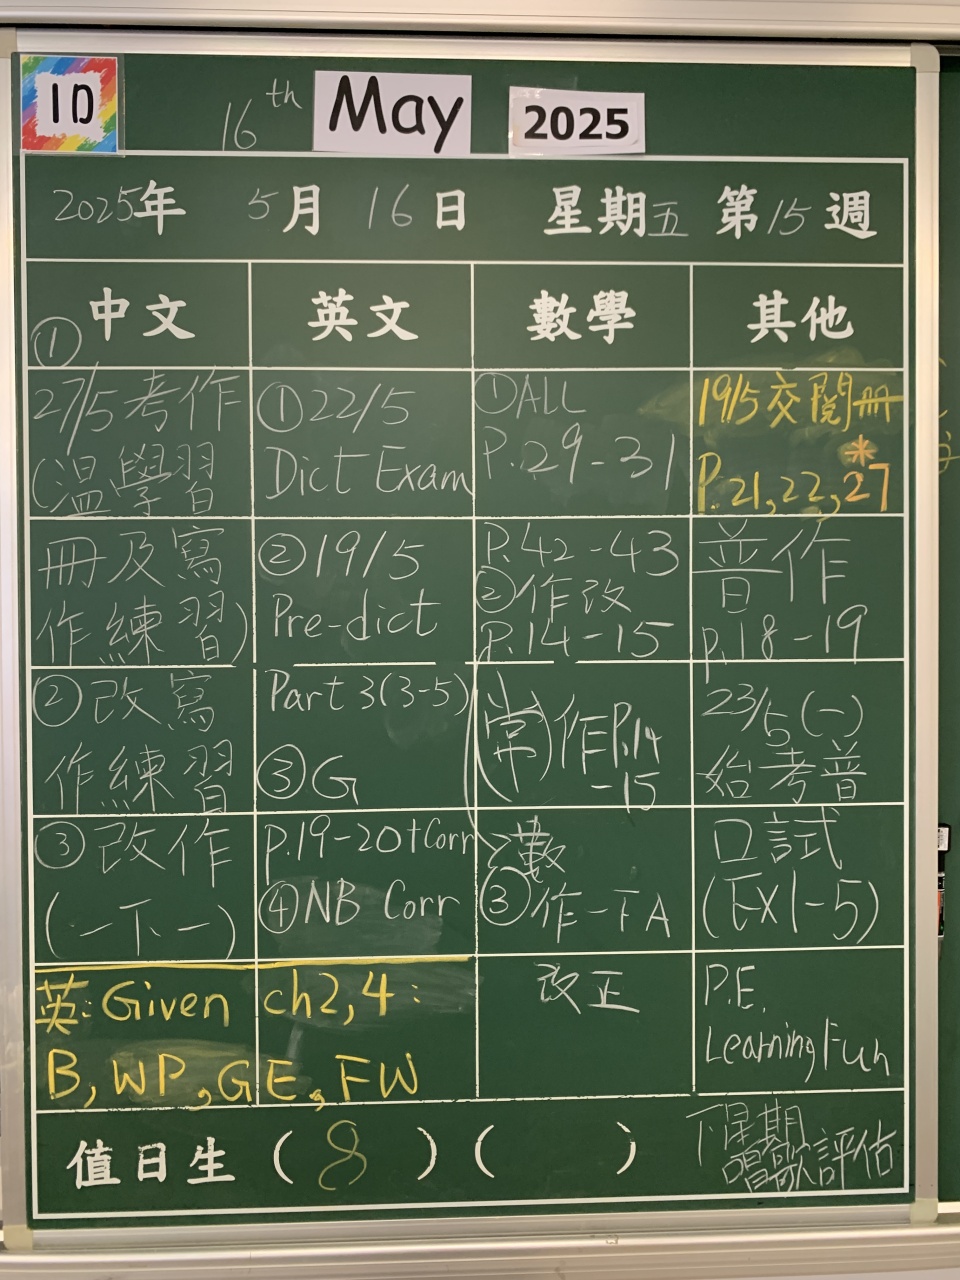 1D
16th May 2025
2025年 5月 16日 星期五 第15週
中文 英文 數學 其他
①
27/5考作
(溫學習
冊及寫
作練習)
②改寫
作練習
③改作
(一下一)
①22/5
Dict Exam
②19/5
Pre-dict
Part 3(3-5)
③G
P.19-20+Corr
④NB Corr
英:Given ch2,4:
B,WP,GE,FW
①ALL
P.29-31
P.42-43
②作改
P.14-15
(常)作P.14
-15
③作一下A
改正
19/5交閱冊
*
P.21,22,27
普作
p.18-19
23/5(一)
始考普
口試
(Ex1-5)
P.E.
Learning Fun
值日生(8)( )
下星期
唱歌評估